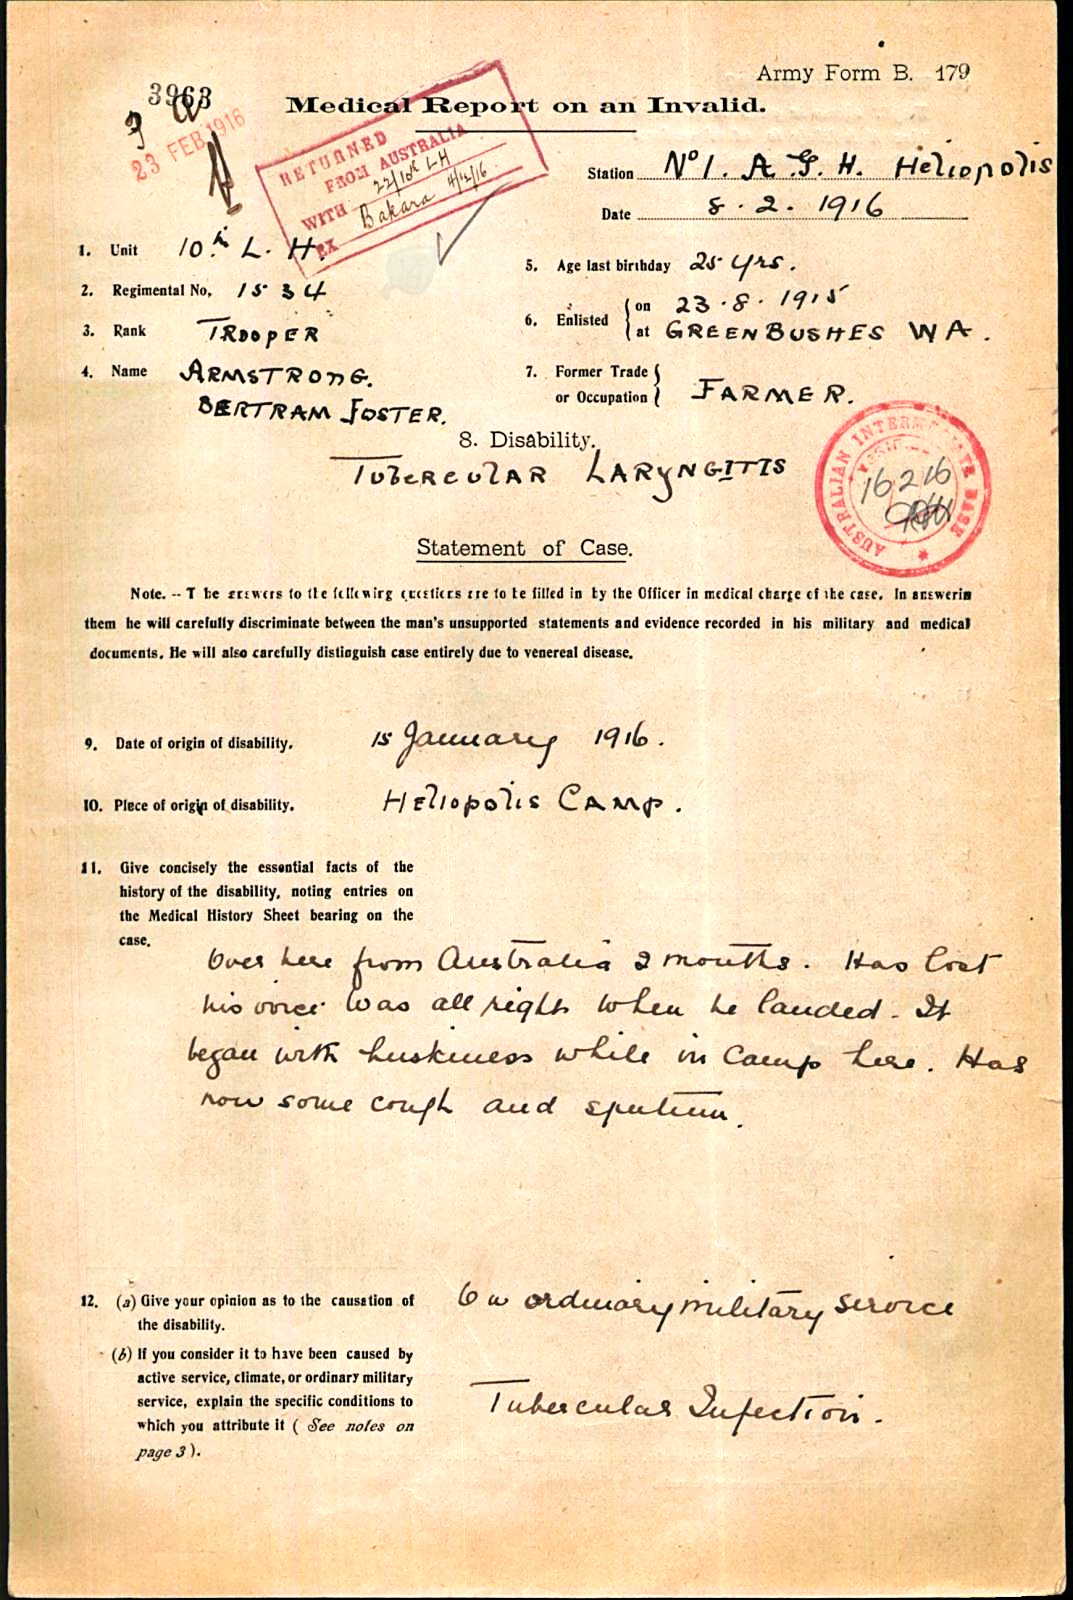 Army Form B. 179
3963
Medical Report on an Invalid.
23 FEB 1916
RETURNED
FROM AUSTRALIA
WITH 22/10th LH
EX Bakara 4/12/16
Station No 1. A. G. H. Heliopolis
Date 8. 2. 1916
1. Unit 10th L. H.
2. Regimental No. 1534
3. Rank TROOPER
4. Name ARMSTRONG.
BERTRAM FOSTER.
5. Age last birthday 25 yrs.
6. Enlisted on 23. 8. 1915
at GREENBUSHES WA.
7. Former Trade
or Occupation FARMER.
8. Disability.
TUBERCULAR LARYNGITIS
AUSTRALIAN INTERMEDIATE BASE
16 2 16
Statement of Case.
Note. -- The answers to the following questions are to be filled in by the Officer in medical charge of the case. In answerin
them he will carefully discriminate between the man's unsupported statements and evidence recorded in his military and medical
documents. He will also carefully distinguish case entirely due to venereal disease.
9. Date of origin of disability. 15 January 1916.
10. Place of origin of disability. Heliopolis Camp.
11. Give concisely the essential facts of the
history of the disability, noting entries on
the Medical History Sheet bearing on the
case.
Over here from Australia 2 months. Has lost
his voice. Was all right when he landed. It
began with huskiness while in Camp here. Has
now some cough and sputum.
12. (a) Give your opinion as to the causation of
the disability.
On ordinary military service
(b) If you consider it to have been caused by
active service, climate, or ordinary military
service, explain the specific conditions to
which you attribute it ( See notes on
page 3 ).
Tubercular Infection.